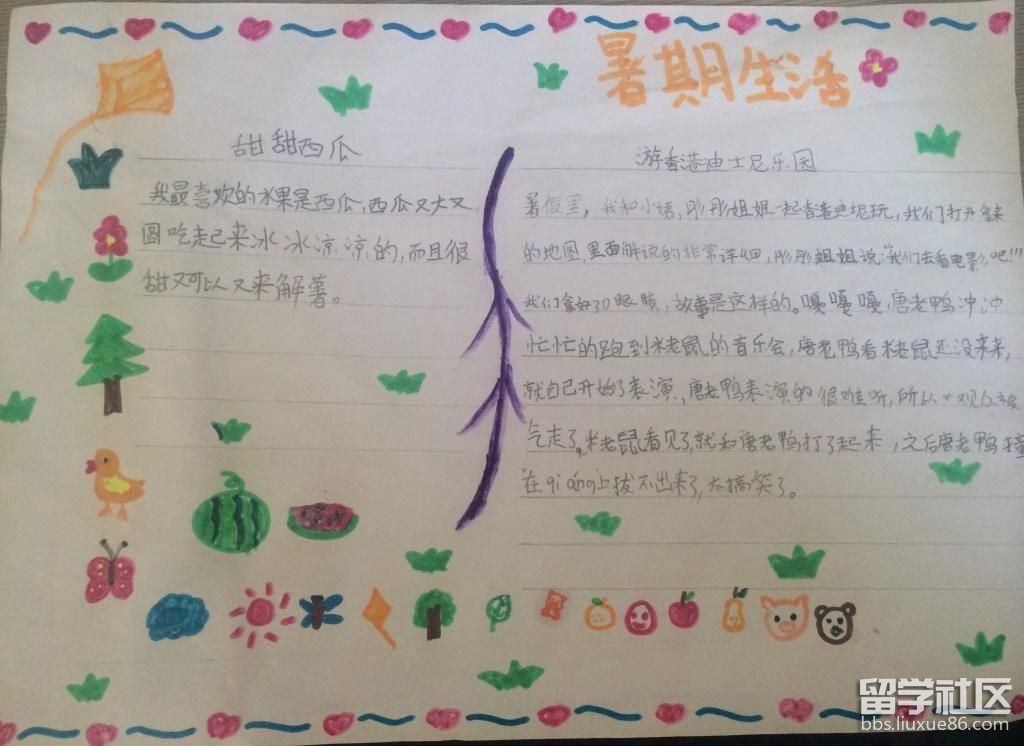 暑期生活
甜甜西瓜
我最喜欢的水果是西瓜,西瓜又大又
圆吃起来冰冰凉凉的,而且很
甜又可以又来解暑。
游香港迪士尼乐园
暑假里,我和小姨,彤彤姐姐一起香港迪尼玩,我们打开
的地图,里面解说的非常详细,彤彤姐姐说:“我们去看电影吧!!!”
我们拿好3D眼镜,故事是这样的。嘎嘎嘎,唐老鸭冲冲
忙忙的跑到米老鼠的音乐会,唐老鸭看米老鼠还没来,
就自己开始了表演,唐老鸭表演的很难听,所以观众被
气走了,米老鼠看见了就和唐老鸭打了起来,之后唐老鸭撞
在qiáng上拔不出来了,太搞笑了。
留学社区
bbs.liuxue86.com